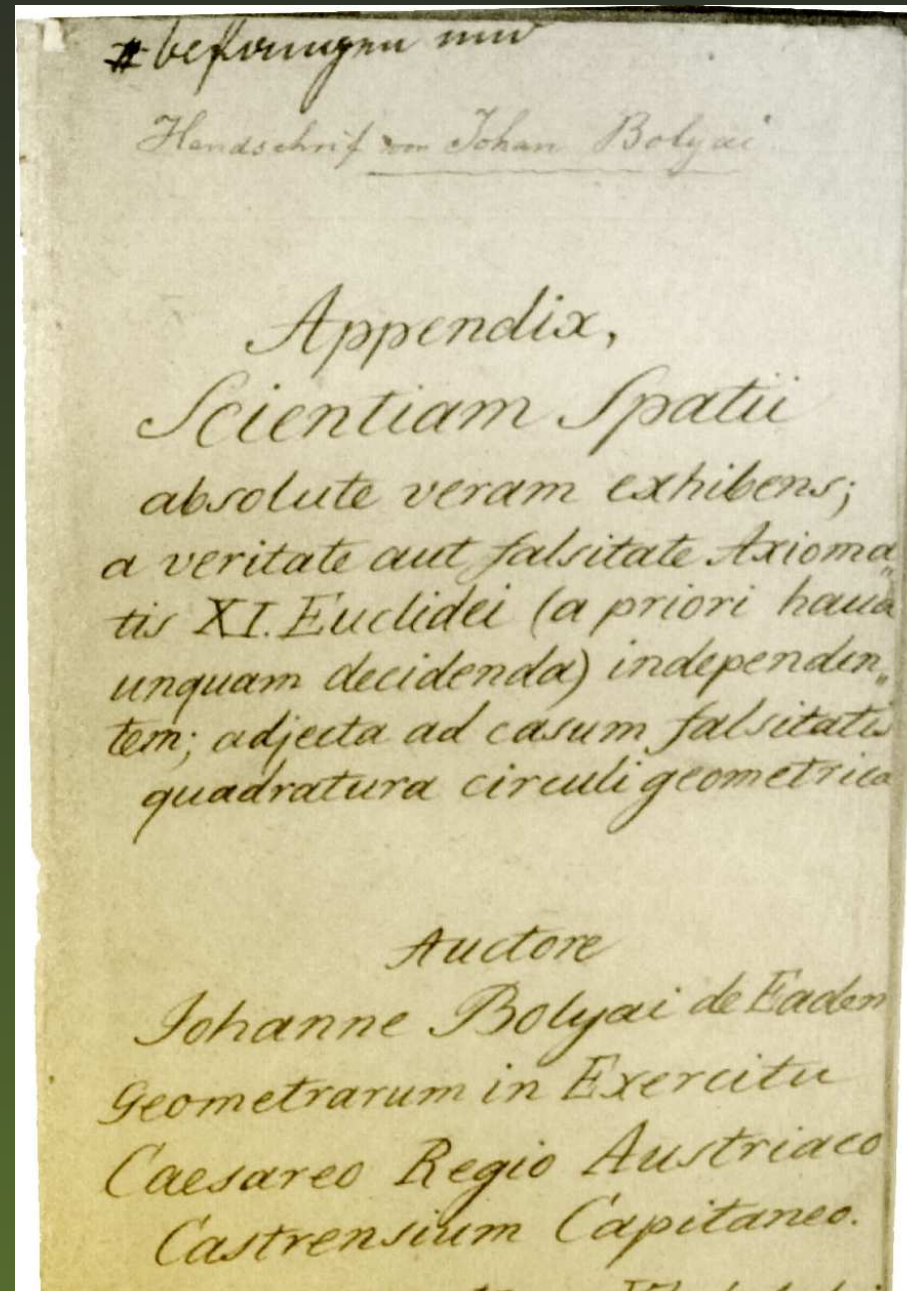 Handschrif von Johan Bolyai
Appendix,
Scientiam Spatii
absolute veram exhibens;
a veritate aut falsitate Axioma„
tis XI. Euclidei (a priori haud
unquam decidenda) independen„
tem; adjecta ad casum falsitatis
quadratura circuli geometrica
Auctore
Iohanne Bolyai de Eadem
Geometrarum in Exercitu
Caesareo Regio Austriaco
Castrensium Capitaneo.